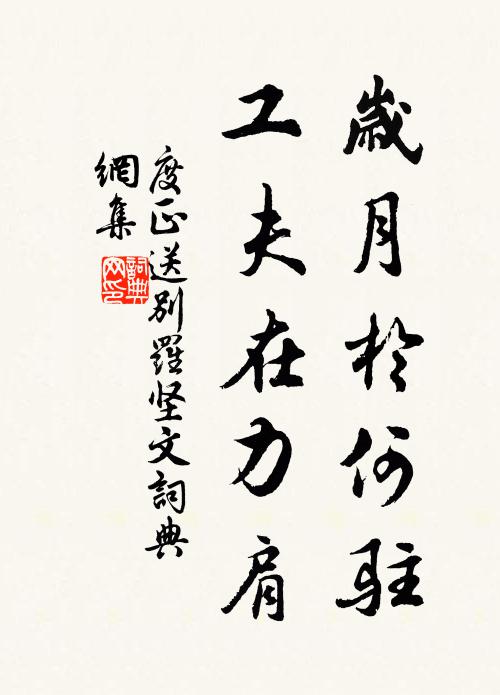 歲月於何駐
工夫在力肩
度正送別羅坚文詞典
網集
詞典
网印